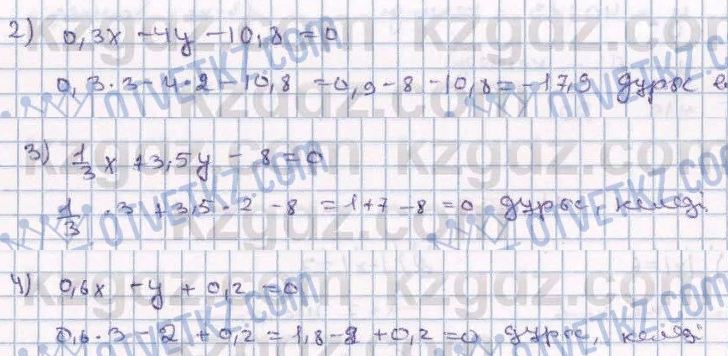 2) 0,3x - 4y - 10,8 = 0
0,3·3 - 4·2 - 10,8 = 0,9 - 8 - 10,8 = -17,9 дұрыс е
3) 1/3 x + 3,5y - 8 = 0
1/3 · 3 + 3,5·2 - 8 = 1 + 7 - 8 = 0 дұрыс, келеді
4) 0,6x - y + 0,2 = 0
0,6·3 - 2 + 0,2 = 1,8 - 2 + 0,2 = 0 дұрыс, келеді